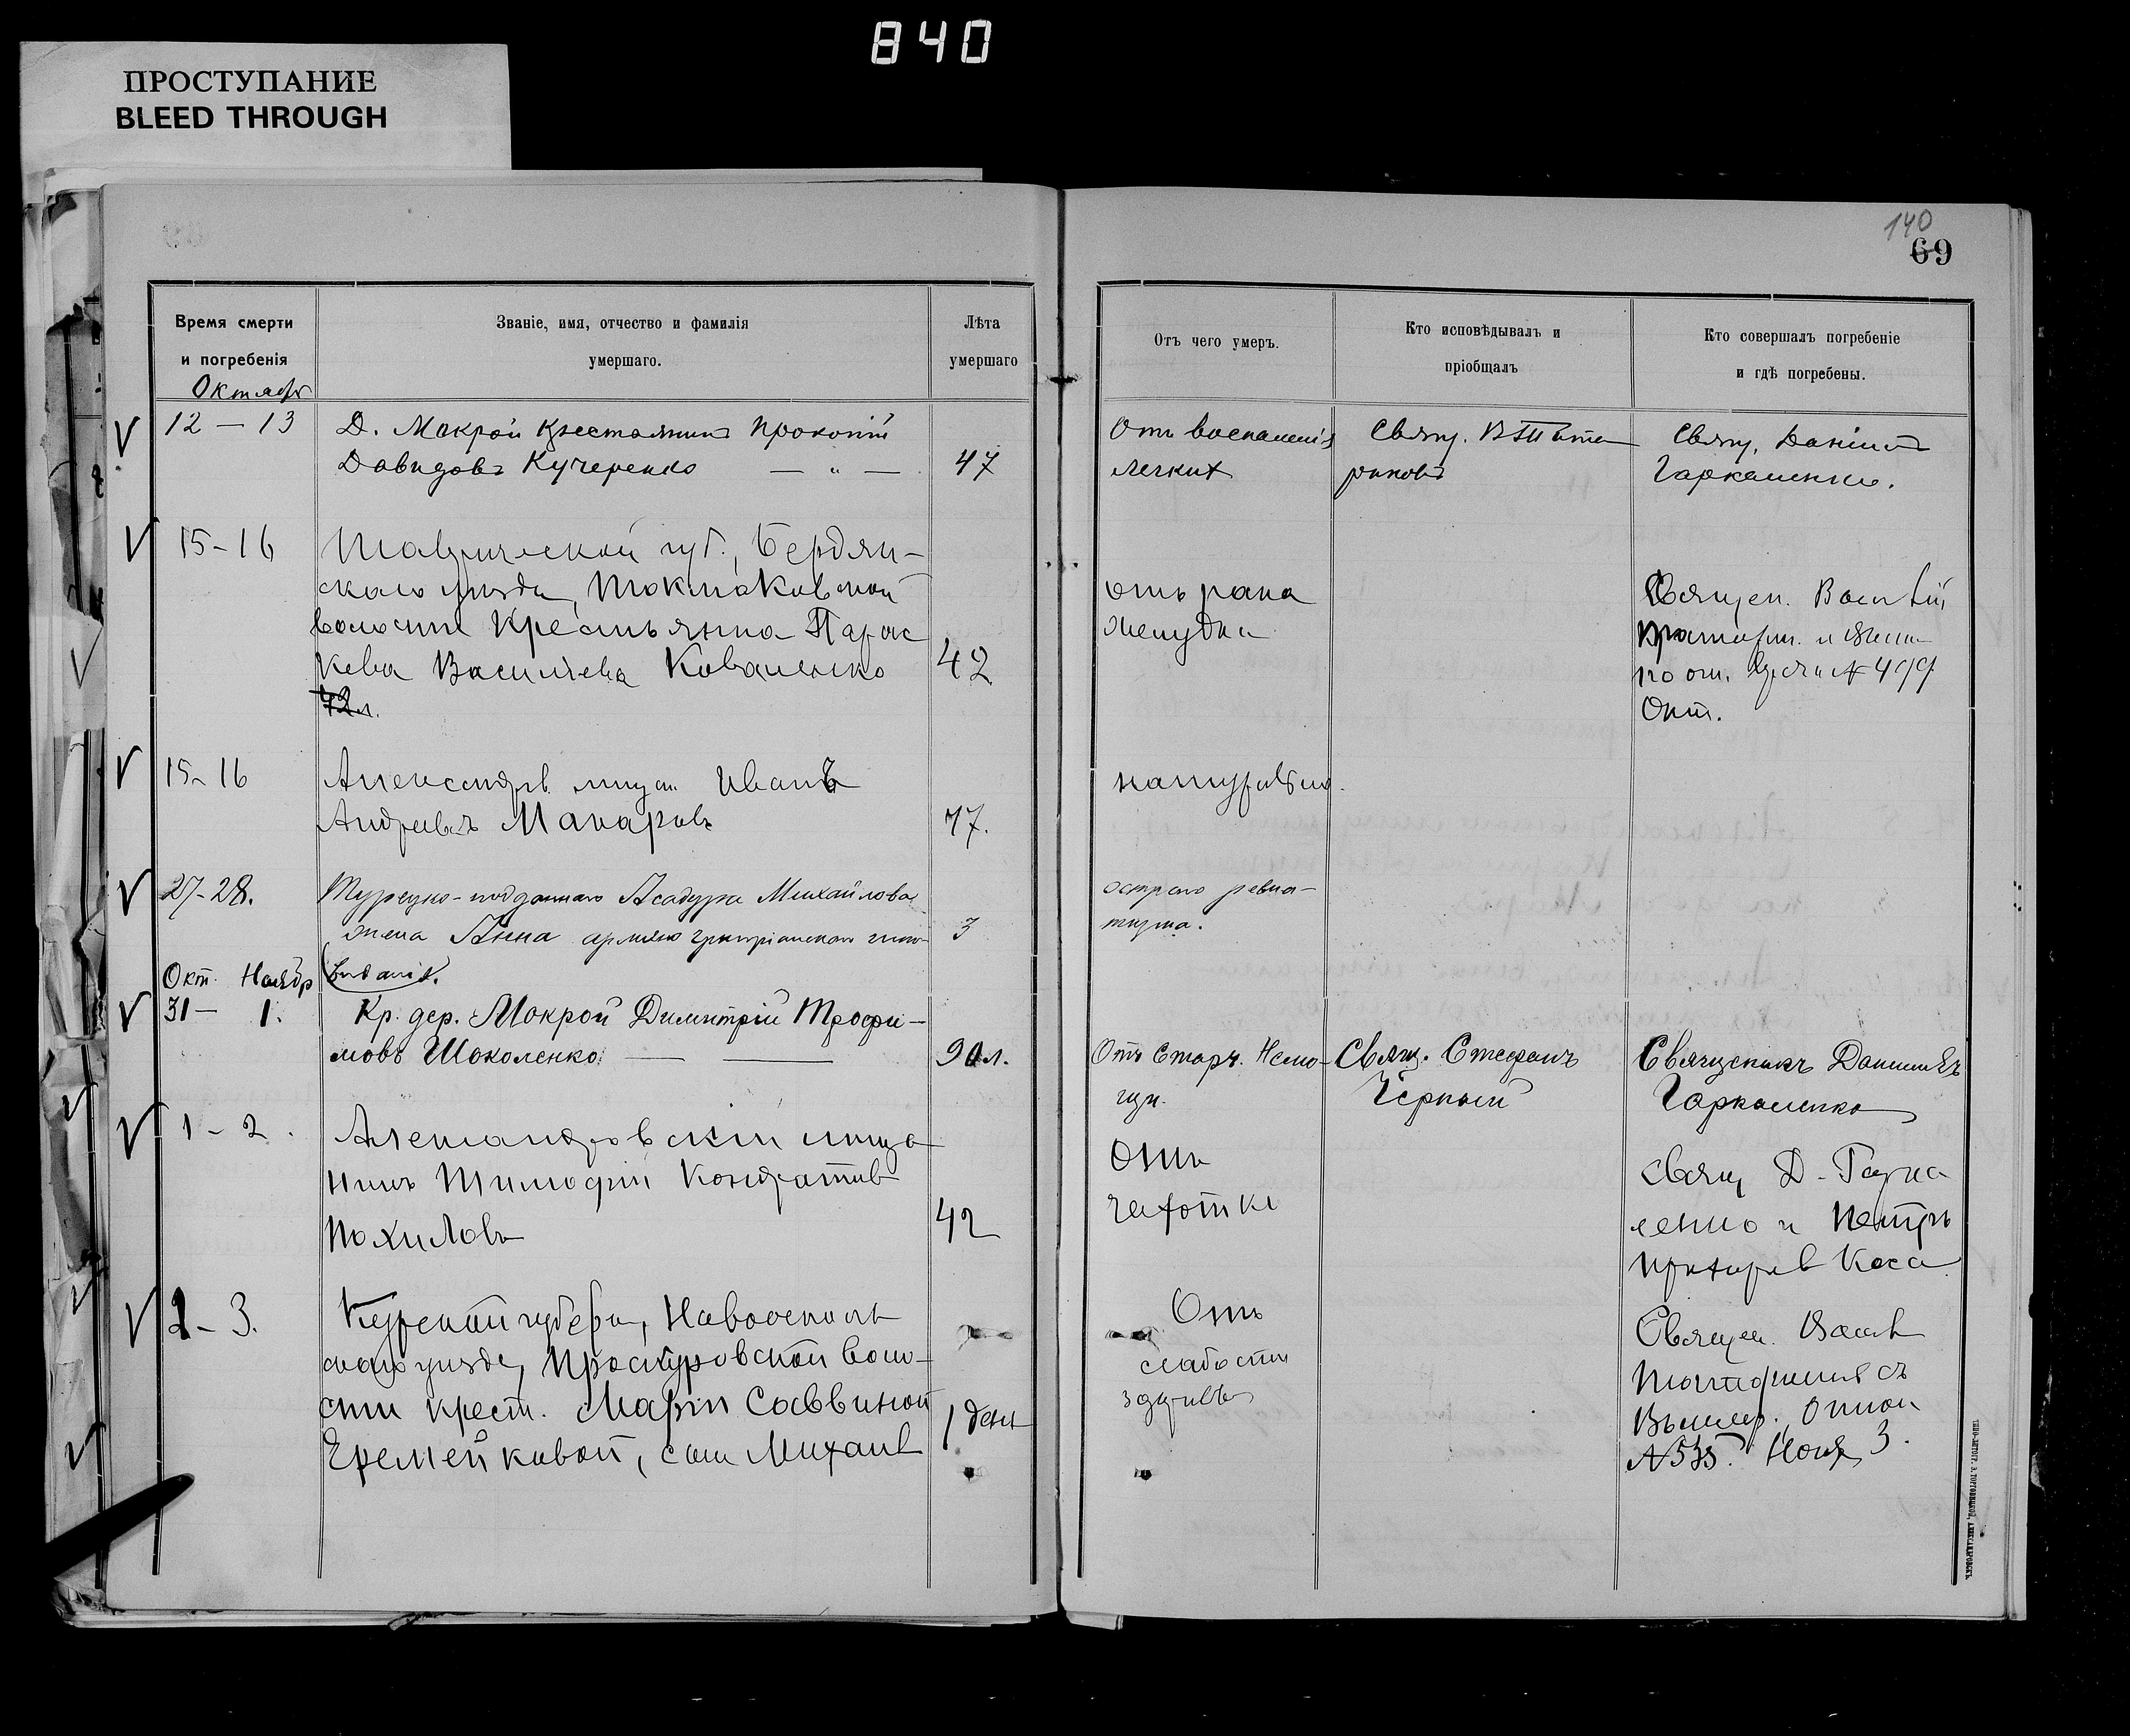 840
ПРОСТУПАНИЕ
BLEED THROUGH
140
69
Время смерти
и погребенія
Званіе, имя, отчество и фамилія
умершаго.
Лѣта
умершаго
Отъ чего умеръ.
Кто исповѣдывалъ и
пріобщалъ
Кто совершалъ погребеніе
и гдѣ погребены.
Октябрь
12 — 13 Д. Мокрой Крестьянинъ Прокопій
Давидовъ Кучеренко — „ — 47
Отъ воспаленія
легкихъ
Свящ.
Свящ. Даніилъ
Гаркаленко.
15-16 Таврической губ., Бердян-
скаго уезда, Токмаковской
волости Крестьянка Парас
кева Васильева Коваленко 42
72 л.
отъ рака
желудка
Священ. Василій
по от. № 499
Окт.
15-16 Александров. мещ. Иванъ
Андреевъ Макаровъ 77.
натурально.
27-28. Турецко-подданнаго Асадура Михайлова
жена Анна армяно григоріанскаго испо- 3
веданія.
остраго ревма-
тизма.
Окт. Ноябр
31 — 1. Кр. дер. Мокрой Димитрій Трофи-
мовъ Шоколенко. — — 90 л.
Отъ Старч. Немо-
щи.
Свящ. Стефанъ
Чёрный
Священникъ Даніилъ
Гаркаленко
1 - 2. Александровскій меща
нинъ Тимофій Кондратив
Похиловъ 42
Отъ
чахотки
свящ Д. Гарка
ленко и Петръ
Коса
2 - 3. Курской губерн, Новооскол
скаго уезда, Проскуровской воло-
сти крест. Маріи Саввиной
Еремейкивой, сын Михаил 1 день
Отъ
слабости
Священ.
съ
№ 535. Нояб 3.
ТИПО-ЛИТОГР. З. ТОРГОВИЦКОЙ, АЛЕКСАНДРОВСКЪ.